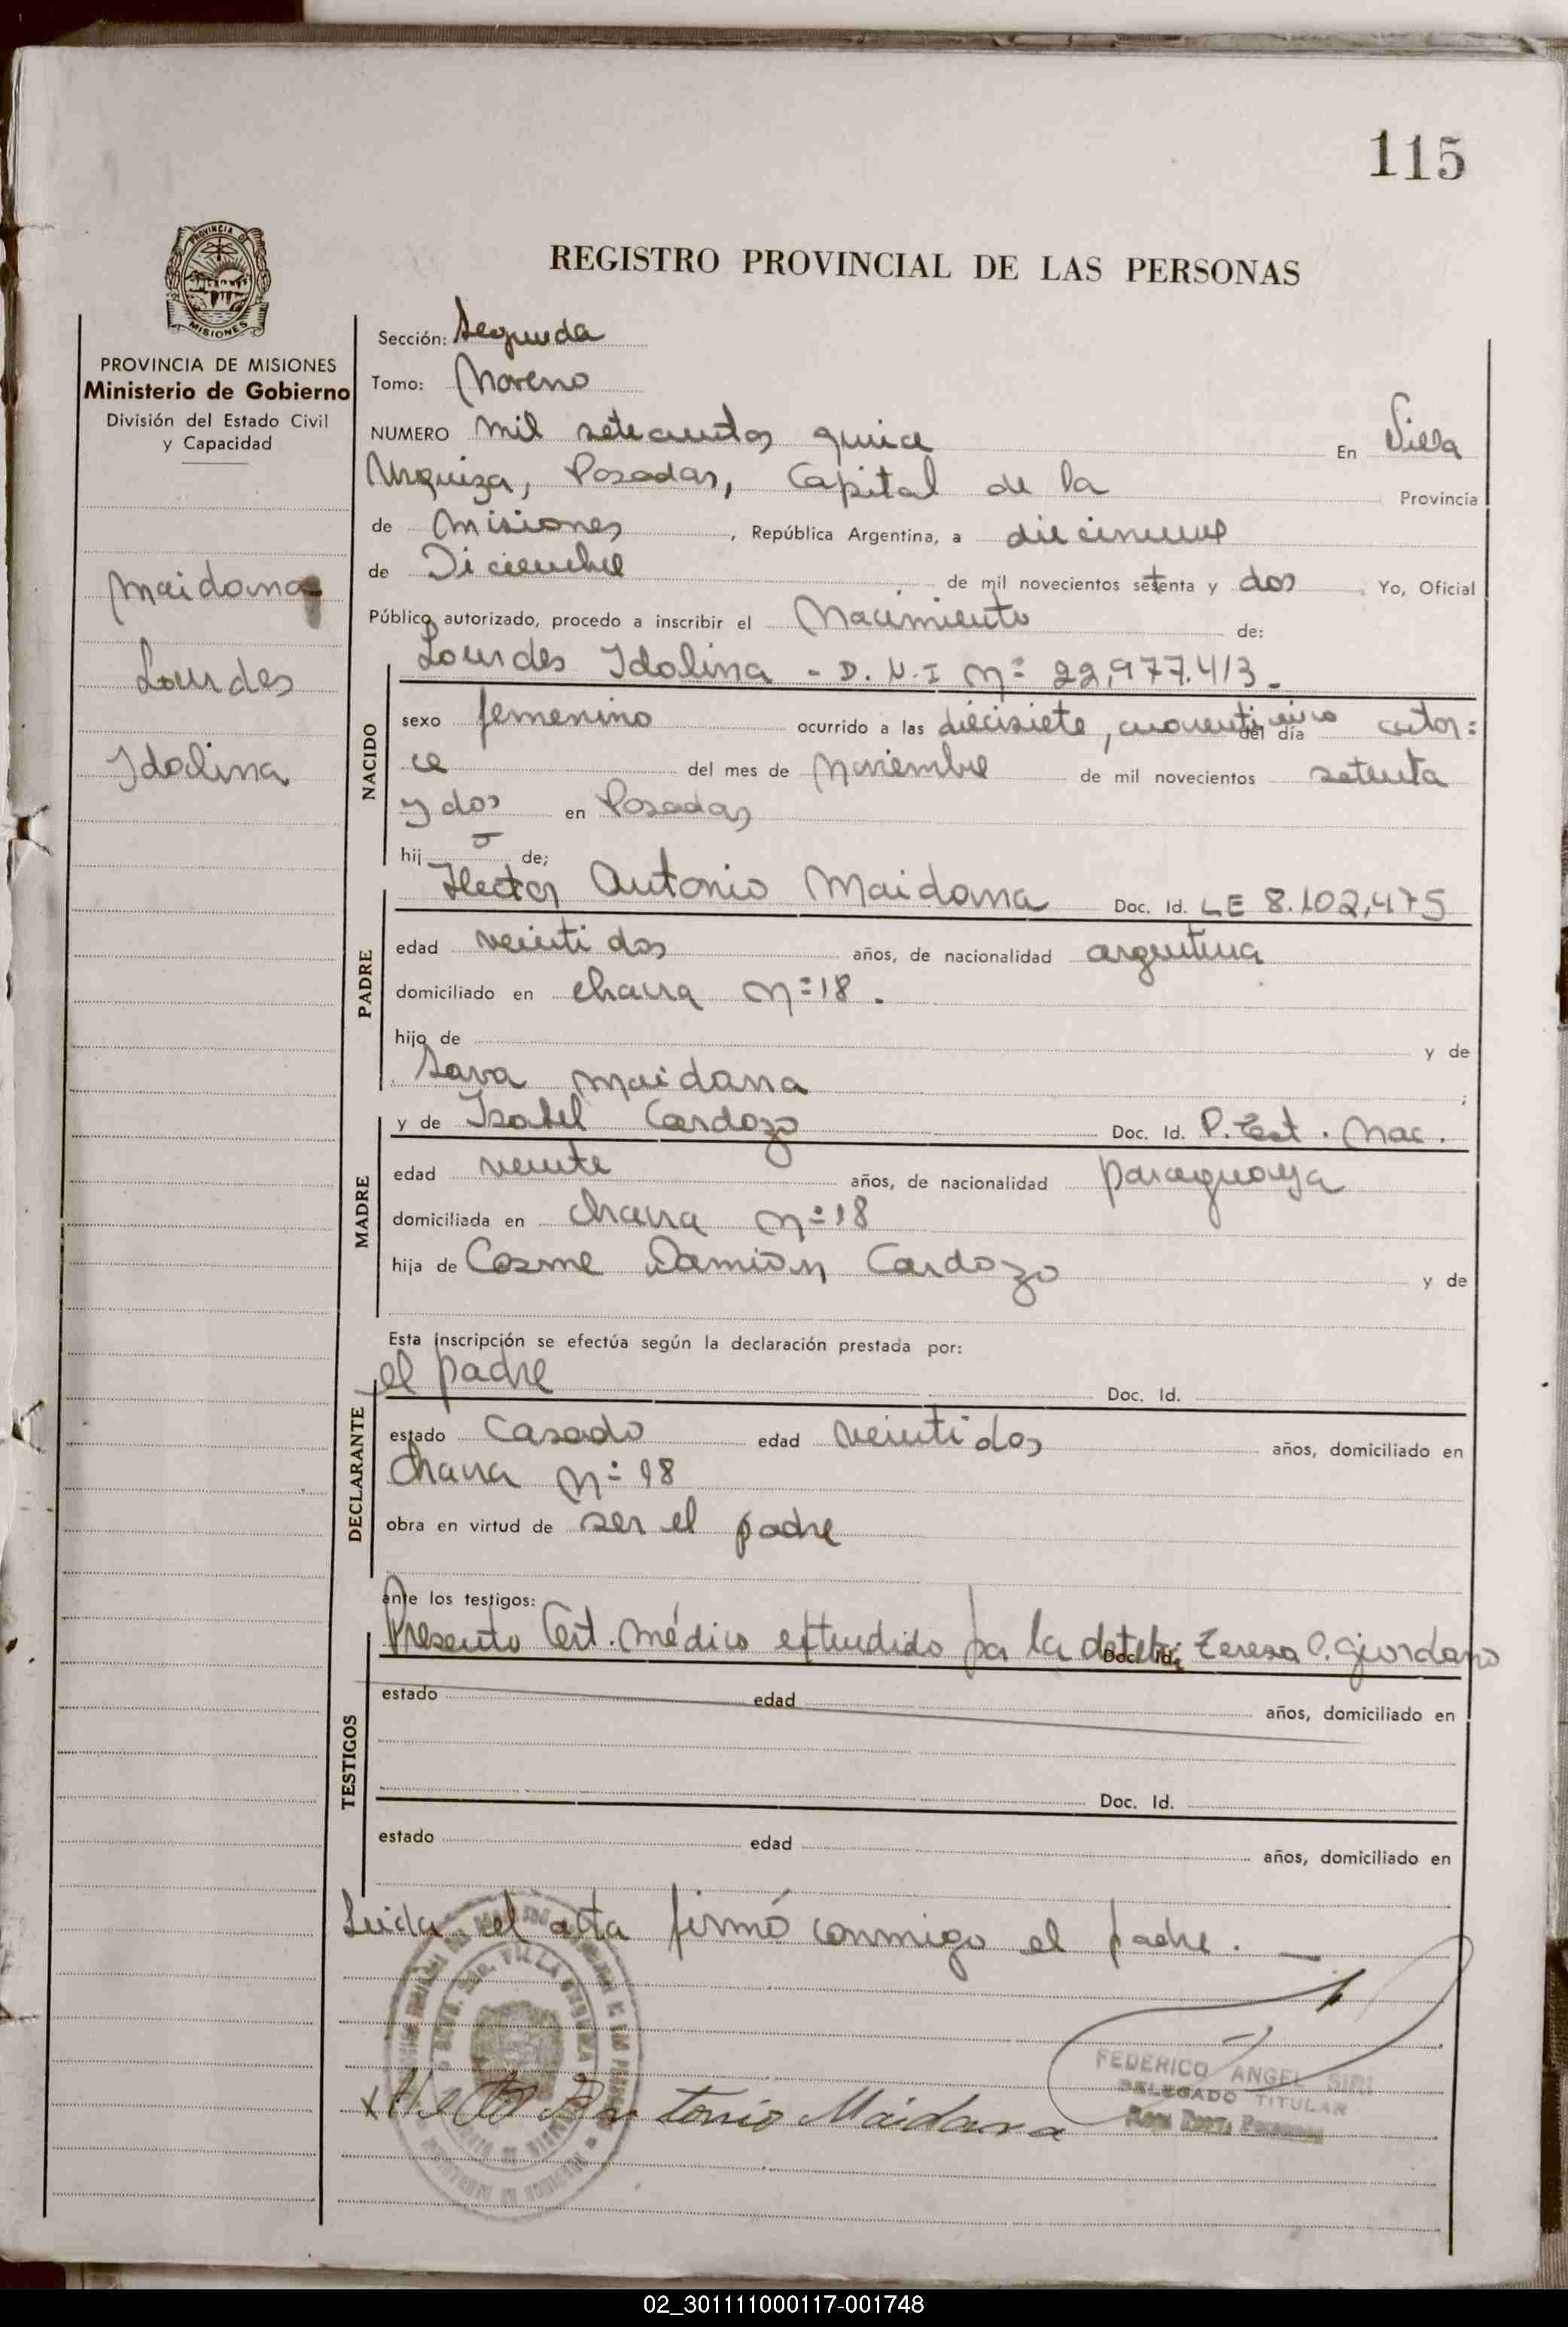 115
PROVINCIA DE MISIONES
REGISTRO PROVINCIAL DE LAS PERSONAS
PROVINCIA DE MISIONES
Ministerio de Gobierno
División del Estado Civil
y Capacidad
Maidana
Lourdes
Idolina
Sección: Segunda
Tomo: Noveno
NUMERO mil setecientos quince En Villa
Urquiza, Posadas, Capital de la Provincia
de Misiones, República Argentina, a diecinueve
de Diciembre de mil novecientos setenta y dos. Yo, Oficial
Público autorizado, procedo a inscribir el Nacimiento de:
NACIDO
Lourdes Idolina - D.N.I Nº 22,977.413.
sexo femenino ocurrido a las diecisiete, del día cator=
ce del mes de Noviembre de mil novecientos setenta
y dos en Posadas
hij de;
PADRE
Hector Antonio Maidana Doc. Id. LE 8.102,475
edad veintidos años, de nacionalidad argentina
domiciliado en chacra Nº 18.
hijo de y de
Sara Maidana ;
MADRE
y de Isabel Cardozo Doc. Id. P. Est. Nac.
edad veinte años, de nacionalidad paraguaya
domiciliada en chacra Nº 18
hija de Cosme Damian Cardozo y de
Esta inscripción se efectúa según la declaración prestada por:
DECLARANTE
el padre Doc. Id.
estado Casado edad veintidos años, domiciliado en
chacra Nº 18
obra en virtud de ser el padre
ante los testigos:
TESTIGOS
Presento Cert. Médico extendido por la Doc. Id. Teresa C. Giordano
estado edad años, domiciliado en
Doc. Id.
estado edad años, domiciliado en
Leida el acta firmó conmigo el padre.
VILLA URQUIZA
FEDERICO ANGEL SIRI
DELEGADO TITULAR
x Hector Antonio Maidana
02_301111000117-001748